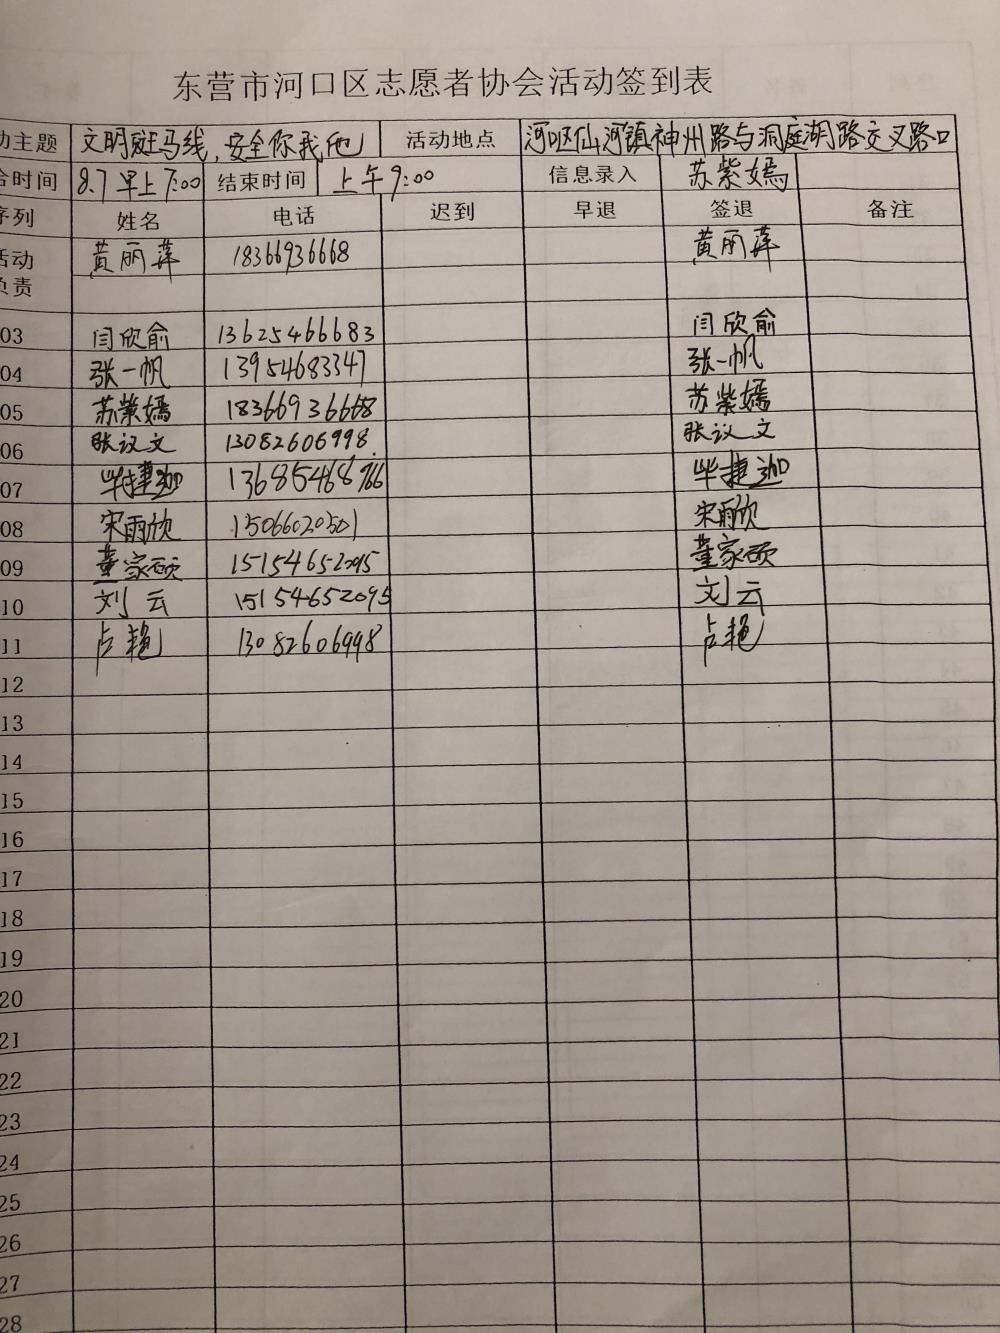 东营市河口区志愿者协会活动签到表
动主题 文明斑马线,安全你我他 活动地点 河口区仙河镇神州路与洞庭湖路交叉路口
合时间 8.7早上7:00 结束时间 上午9:00 信息录入 苏紫嫣
序列 姓名 电话 迟到 早退 签退 备注
活动 黄丽萍 18366936668 黄丽萍
负责
03 闫欣俞 13625466683 闫欣俞
04 张一帆 13954683347 张一帆
05 苏紫嫣 18366936668 苏紫嫣
06 张议文 13082606998 张议文
07 毕捷迦 13685468766 毕捷迦
08 宋雨欣 15066020501 宋雨欣
09 董家硕 15154652095 董家硕
10 刘云 15154652095 刘云
11 占艳 13082606998 占艳
12
13
14
15
16
17
18
19
20
21
22
23
24
25
26
27
28